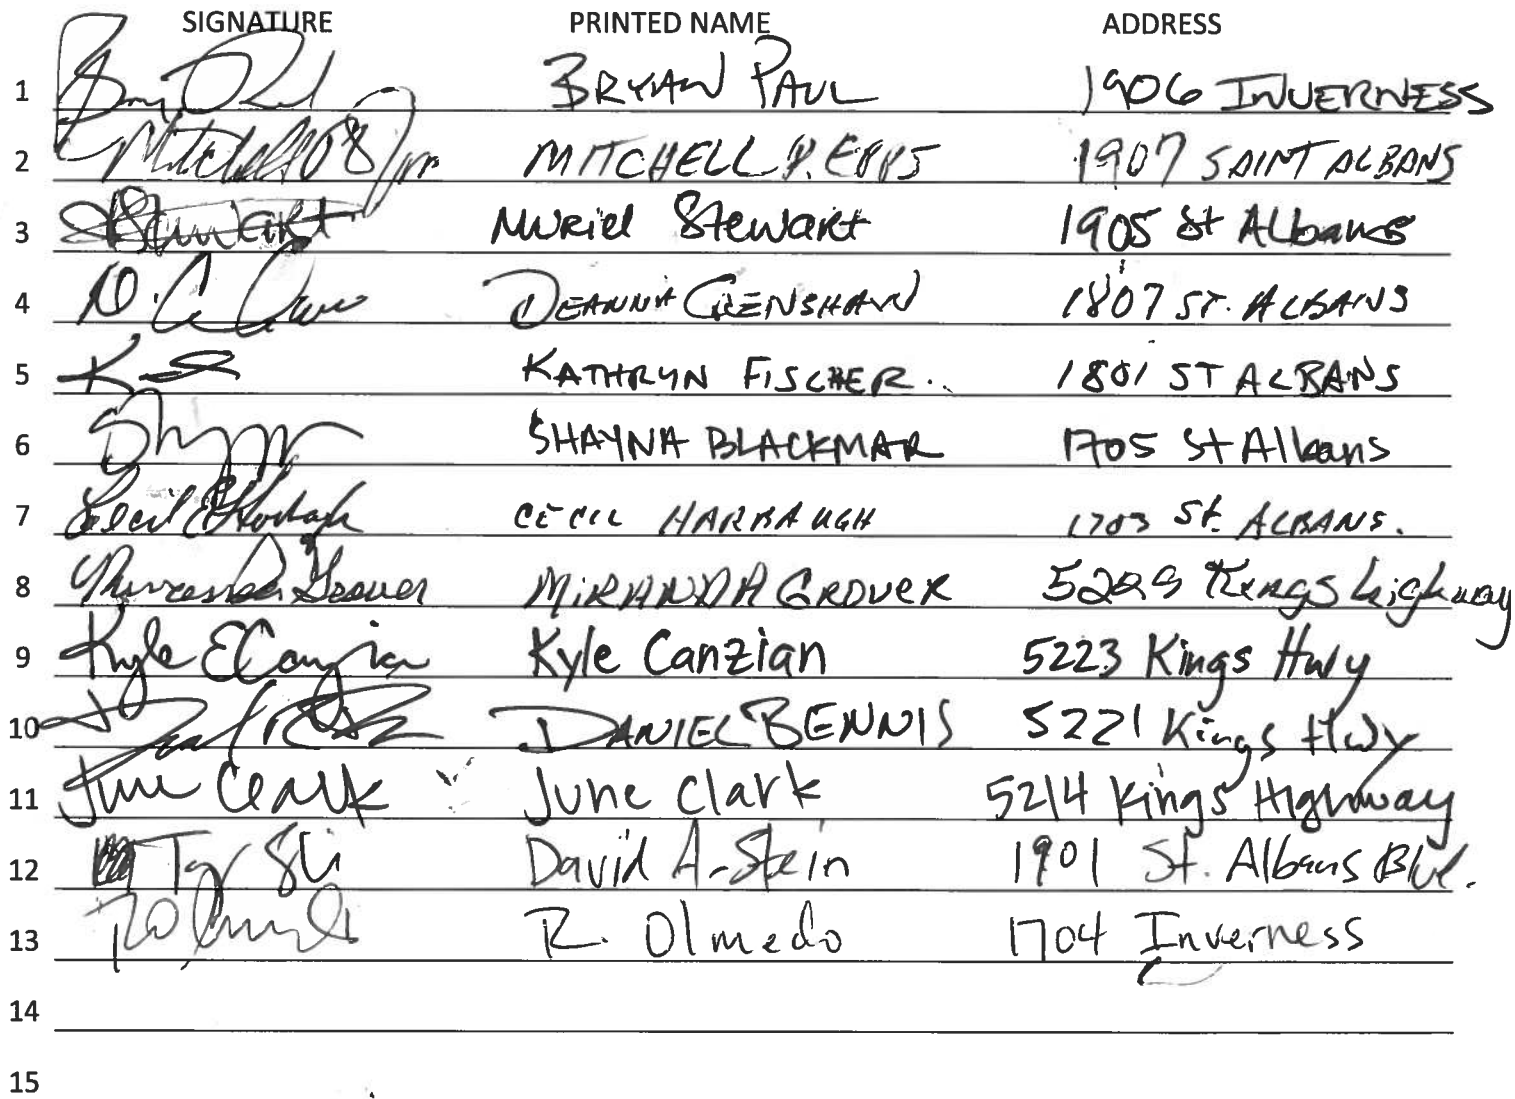 SIGNATURE PRINTED NAME ADDRESS
1 BRYAN PAUL 1906 INVERNESS
2 MITCHELL P. EPPS 1907 SAINT ALBANS
3 Stewart Muriel Stewart 1905 St Albans
4 DEANNA CRENSHAW 1807 ST. ALBANS
5 KATHRYN FISCHER. 1801 ST ALBANS
6 SHAYNA BLACKMAR 1705 St Albans
7 Cecil E Harbaugh CECIL HARBAUGH 1703 St. ALBANS.
8 Miranda Grover MIRANDA GROVER Kings highway
9 Kyle E Canzian Kyle Canzian 5223 Kings Hwy
10 DANIEL BENNIS 5221 Kings Hwy
11 June Clark June Clark 5214 Kings Highway
12 David A. Stein 1901 St. Albans Blvd.
13 R. Olmedo 1704 Inverness
14
15